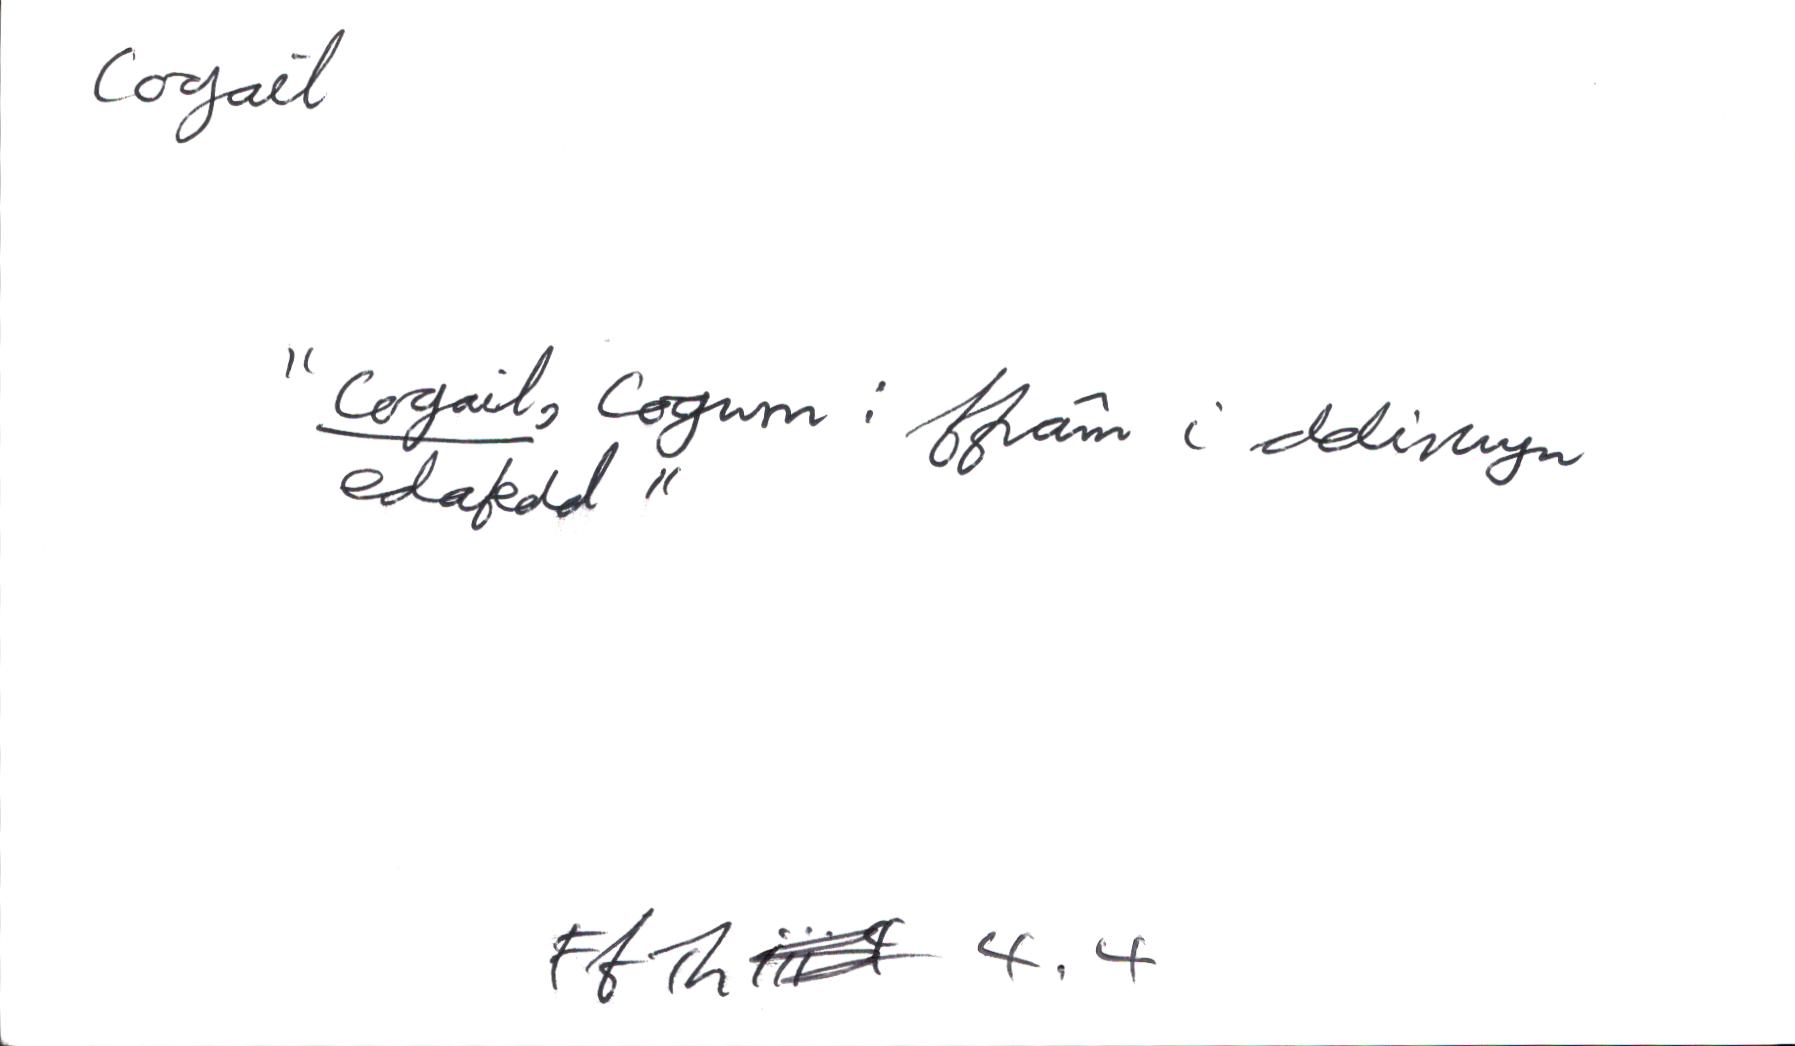 Cogail
"Cogail, Cogwrn : ffrâm i ddirwyn
edafedd"
Ff Th 4.4